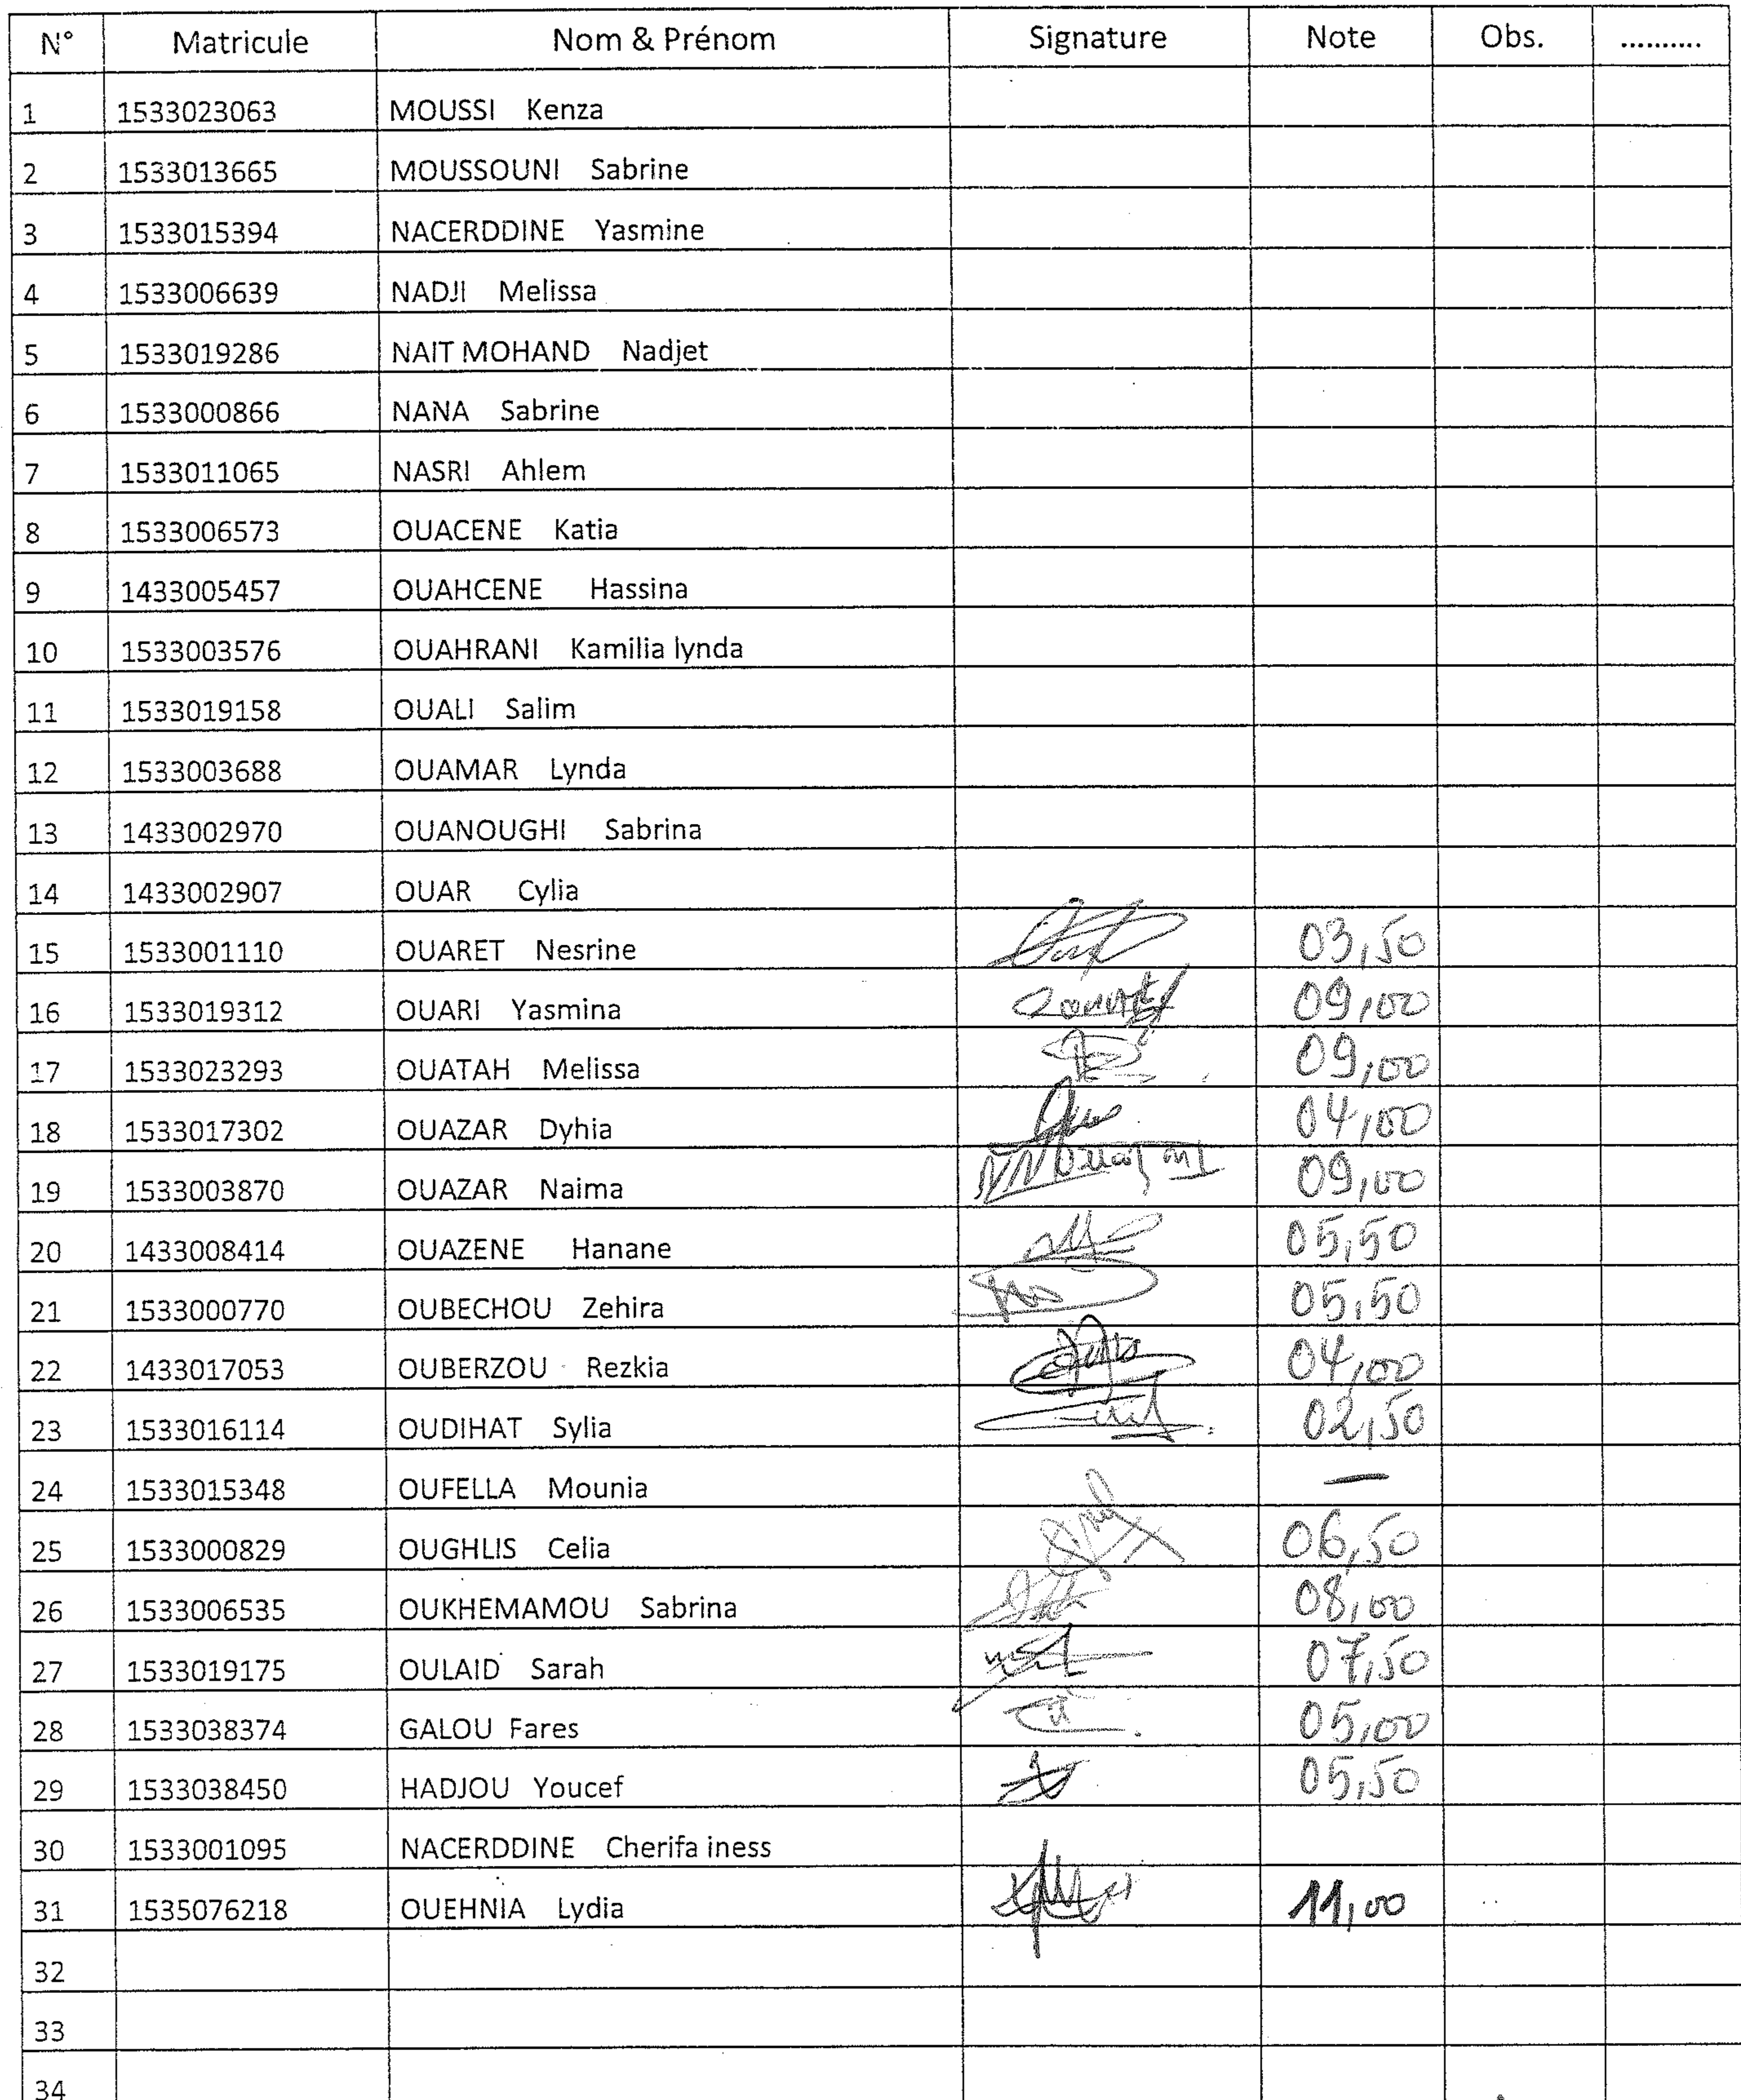 N° Matricule Nom & Prénom Signature Note Obs. ..........
1 1533023063 MOUSSI Kenza
2 1533013665 MOUSSOUNI Sabrine
3 1533015394 NACERDDINE Yasmine
4 1533006639 NADJI Melissa
5 1533019286 NAIT MOHAND Nadjet
6 1533000866 NANA Sabrine
7 1533011065 NASRI Ahlem
8 1533006573 OUACENE Katia
9 1433005457 OUAHCENE Hassina
10 1533003576 OUAHRANI Kamilia lynda
11 1533019158 OUALI Salim
12 1533003688 OUAMAR Lynda
13 1433002970 OUANOUGHI Sabrina
14 1433002907 OUAR Cylia
15 1533001110 OUARET Nesrine 03,50
16 1533019312 OUARI Yasmina 09,00
17 1533023293 OUATAH Melissa 09,00
18 1533017302 OUAZAR Dyhia 04,00
19 1533003870 OUAZAR Naima 09,00
20 1433008414 OUAZENE Hanane 05,50
21 1533000770 OUBECHOU Zehira 05,50
22 1433017053 OUBERZOU Rezkia 04,00
23 1533016114 OUDIHAT Sylia 02,50
24 1533015348 OUFELLA Mounia —
25 1533000829 OUGHLIS Celia 06,50
26 1533006535 OUKHEMAMOU Sabrina 08,00
27 1533019175 OULAID Sarah 07,50
28 1533038374 GALOU Fares 05,00
29 1533038450 HADJOU Youcef 05,50
30 1533001095 NACERDDINE Cherifa iness
31 1535076218 OUEHNIA Lydia 11,00
32
33
34